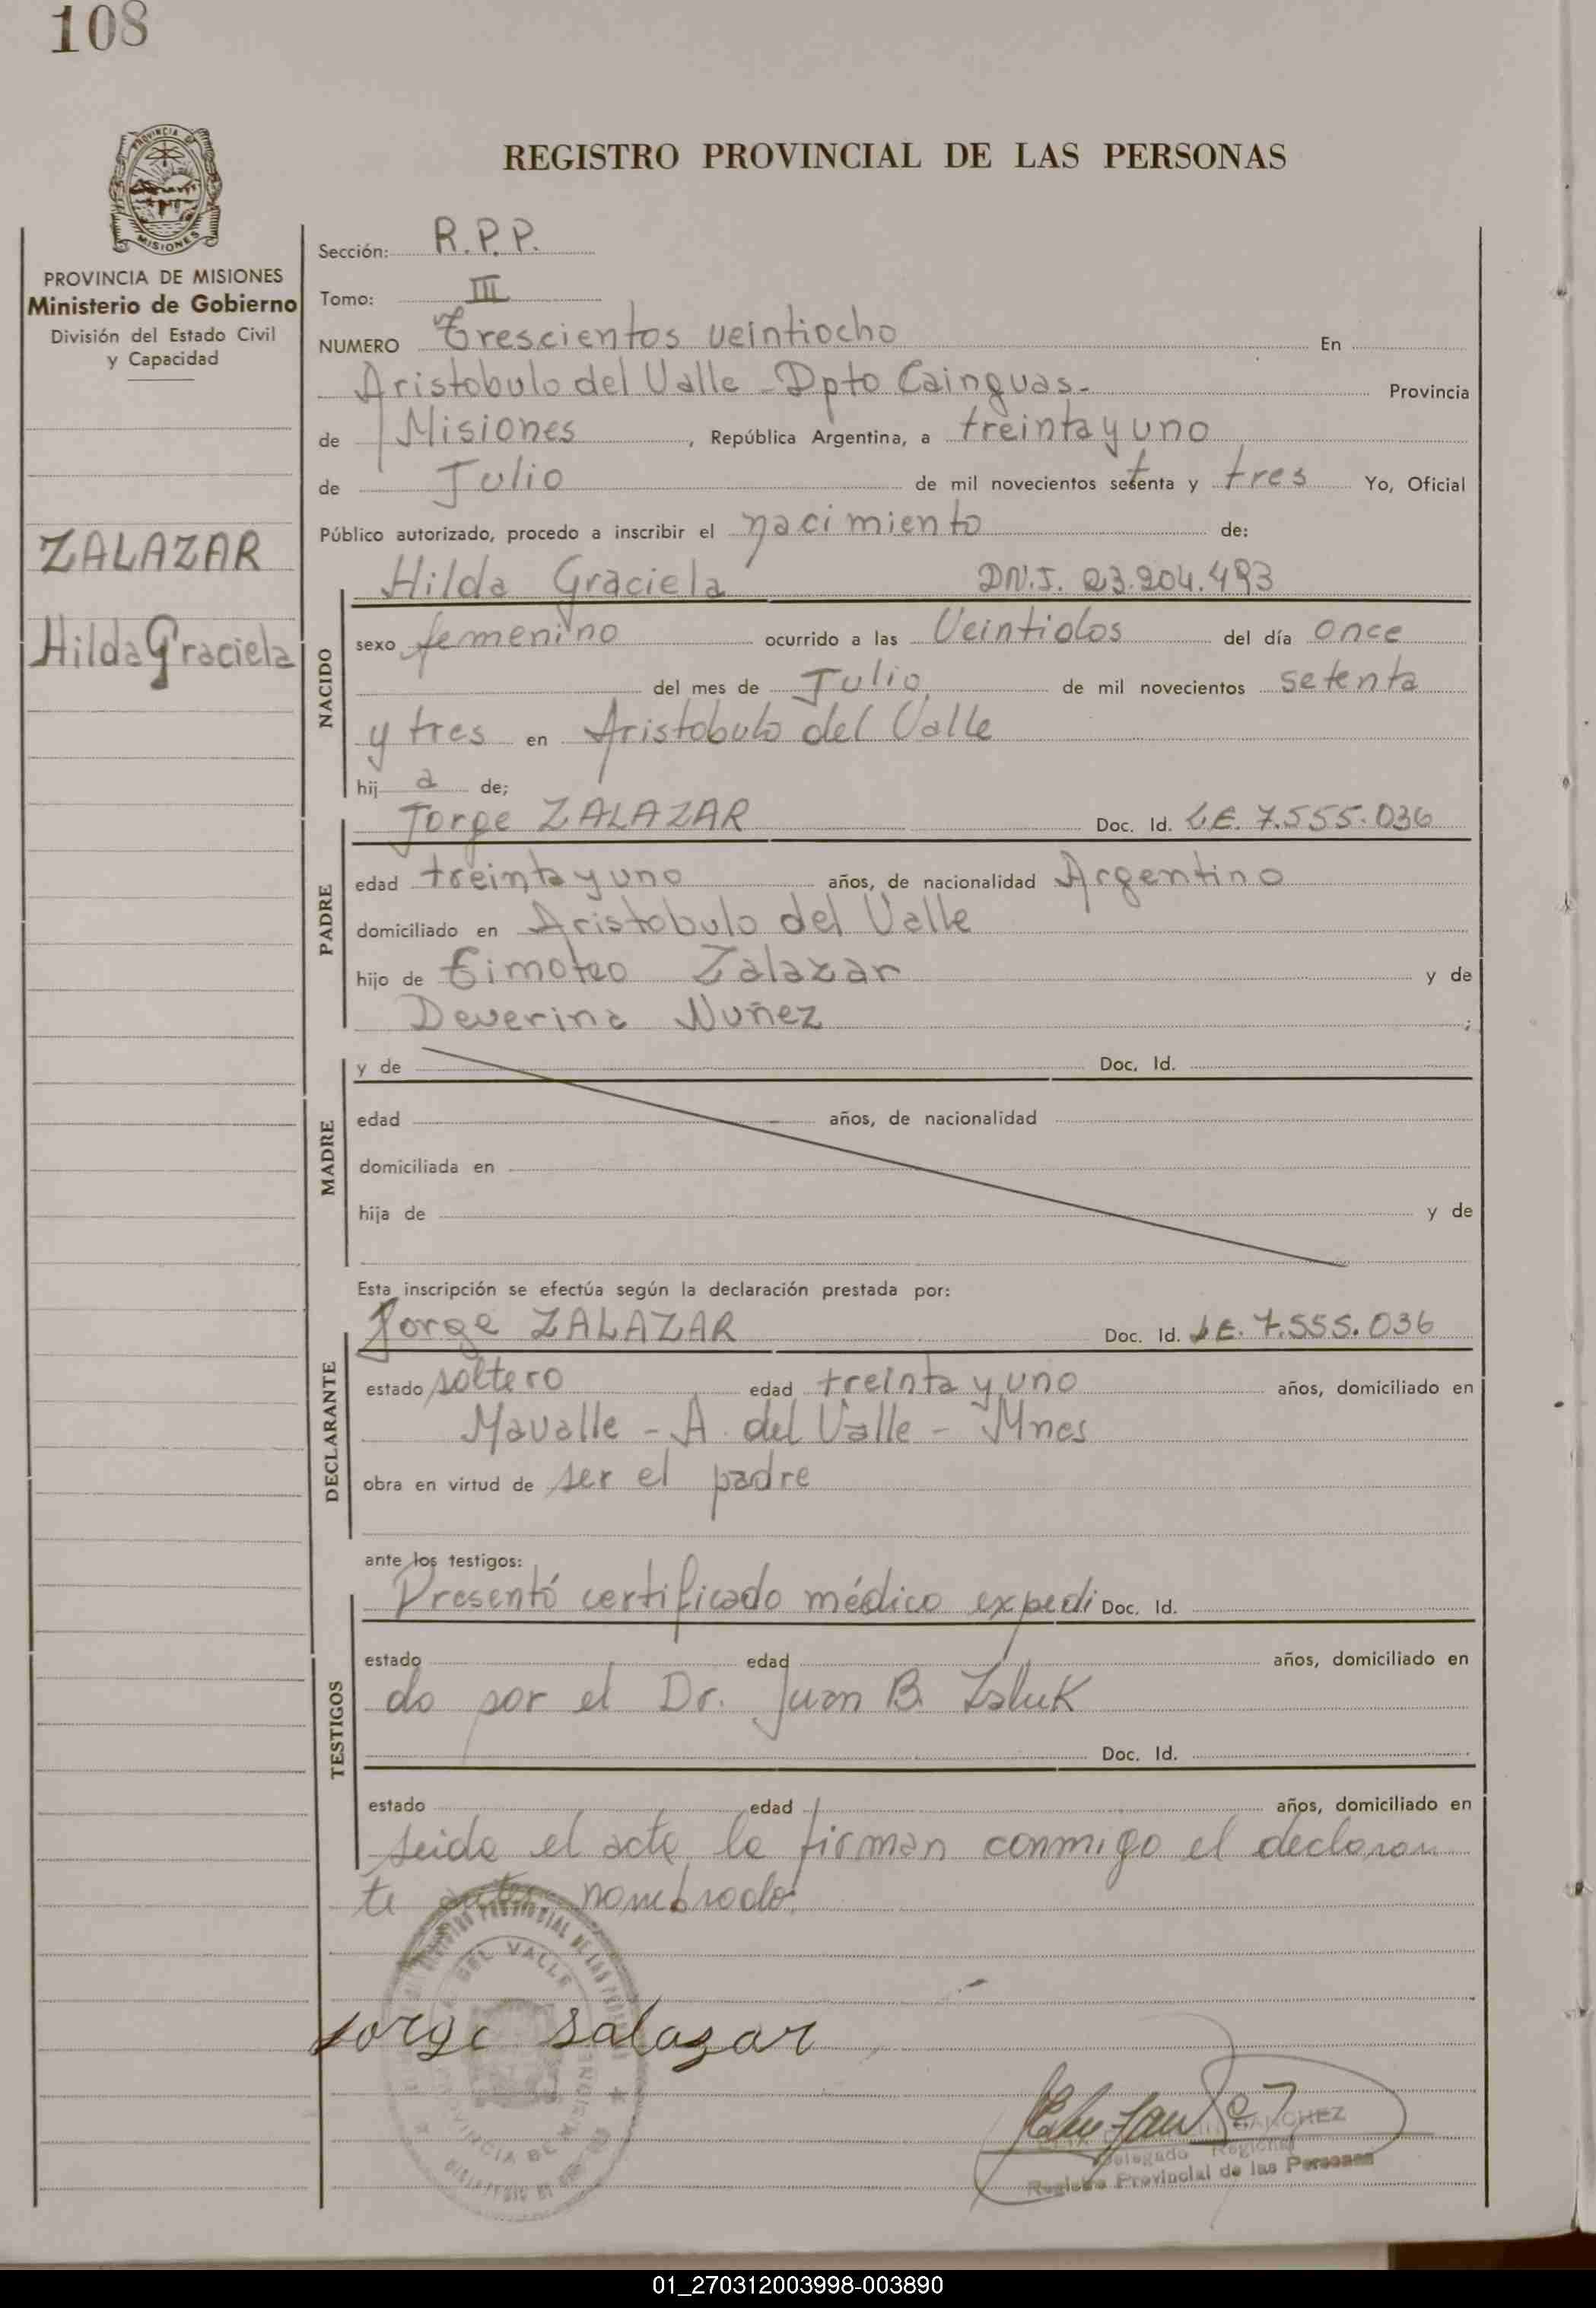 108
PROVINCIA DE
MISIONES
PROVINCIA DE MISIONES
Ministerio de Gobierno
División del Estado Civil
y Capacidad
ZALAZAR
Hilda Graciela
REGISTRO PROVINCIAL DE LAS PERSONAS
Sección: R.P.P.
Tomo: III
NUMERO Trescientos veintiocho En
Aristobulo del Valle - Dpto Cainguas - Provincia
de Misiones, República Argentina, a treinta y uno
de Julio de mil novecientos setenta y tres Yo, Oficial
Público autorizado, procedo a inscribir el nacimiento de:
Hilda Graciela D.N.I. 23.204.493
NACIDO
sexo femenino ocurrido a las Veintidos del día once
del mes de Julio de mil novecientos setenta
y tres en Aristobulo del Valle
hij a de;
Jorge ZALAZAR Doc. Id. L.E. 7.555.036
PADRE
edad treinta y uno años, de nacionalidad Argentino
domiciliado en Aristobulo del Valle
hijo de Timoteo Zalazar y de
Deverina Nuñez ;
MADRE
y de Doc. Id.
edad años, de nacionalidad
domiciliada en
hija de y de
Esta inscripción se efectúa según la declaración prestada por:
Jorge ZALAZAR Doc. Id. L.E. 7.555.036
DECLARANTE
estado soltero edad treinta y uno años, domiciliado en
Mavalle - A. del Valle - Mnes
obra en virtud de ser el padre
ante los testigos:
Presentó certificado médico expedi Doc. Id.
TESTIGOS
estado edad años, domiciliado en
do por el Dr. Juan B. Zaluk
Doc. Id.
estado edad años, domiciliado en
Leida el acta, la firman conmigo el declaran
te antes nombrado.
DEL VALLE
PROVINCIA DE MISIONES
Jorge Salazar
SANCHEZ
Delegado Regional
Registro Provincial de las Personas
01_270312003998-003890